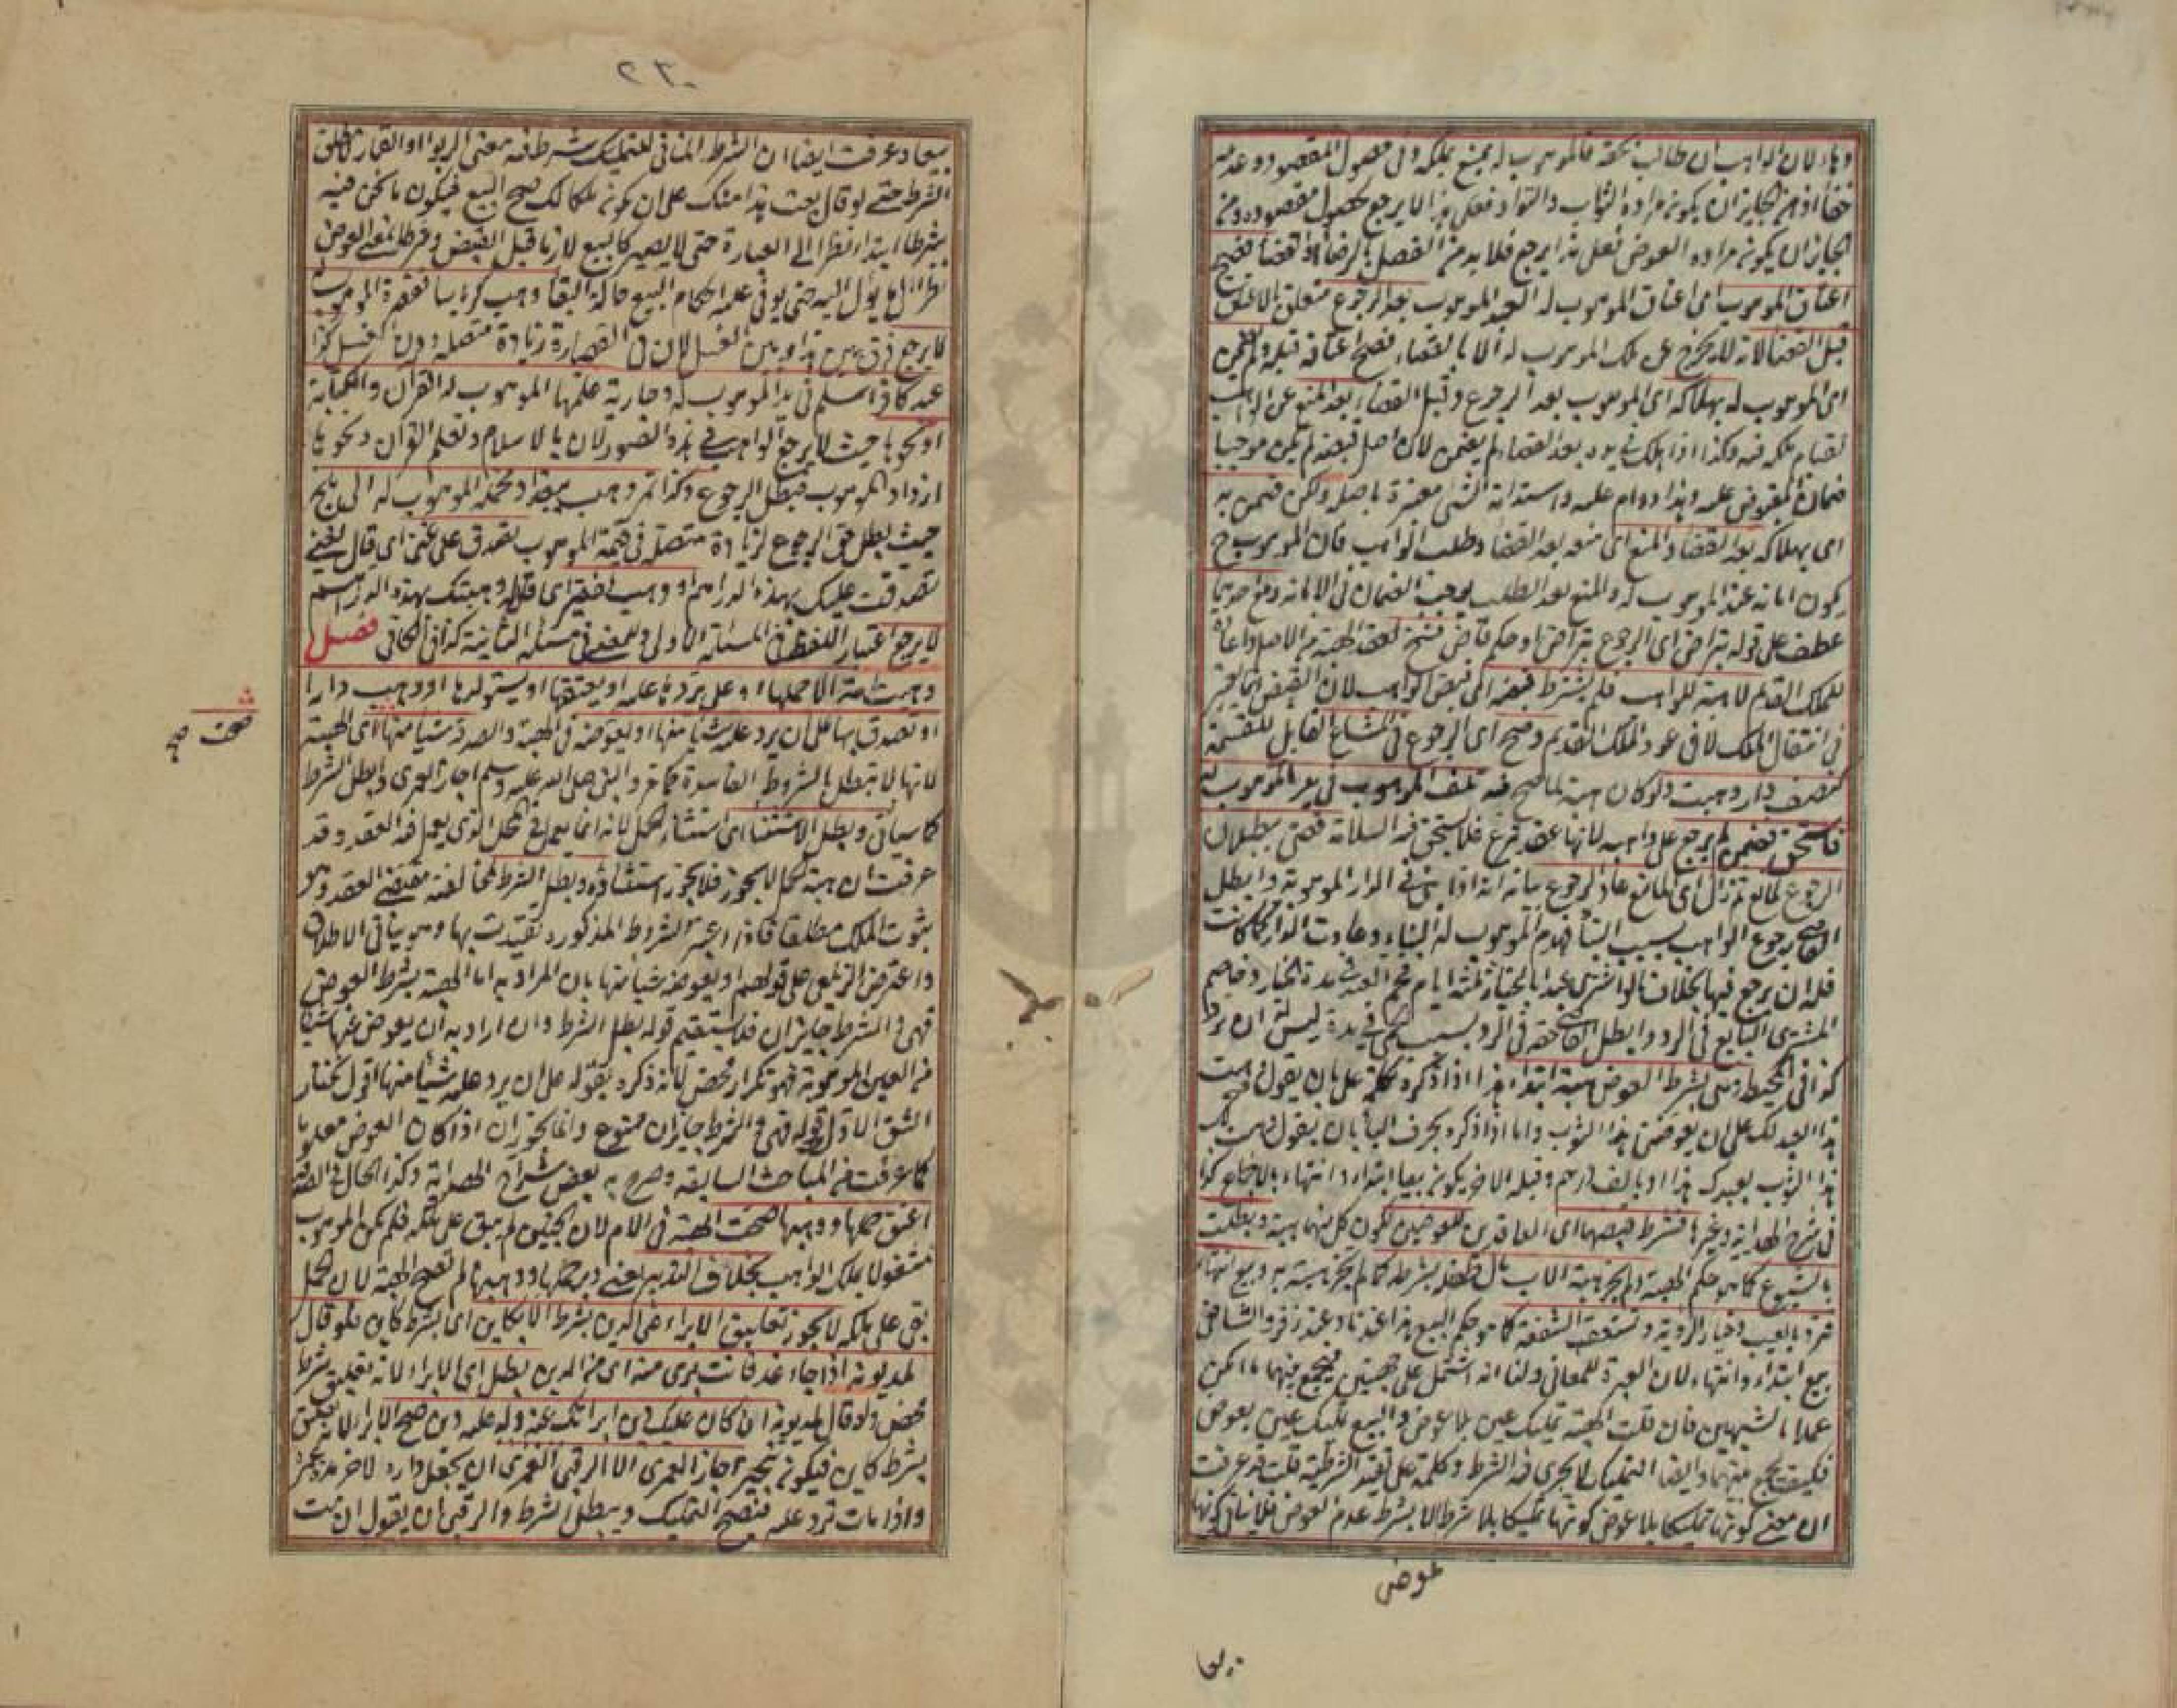 وهاء لان الواهب ان طالب بحقه فالموهوب له يمنع بملكه وفي حصول المقصود وعدمه
خفأ اذ من الجايز ان يكون مراده الثواب والتواد فعلى هذا لا يرجع لحصول مقصوده ومن
الجايز ان يكون مراده العوض فعلى هذا يرجع فلا بد من الفصل بالرضا او القضأ فصح
اعتاق الموهوب اى اعتاق الموهوب له العبد الموهوب بعد الرجوع متعلق بالاعتاق
قبل القضأ لانه لا يخرج عن ملك الموهوب له الا بالقضاء فصح اعتاقه قبله ولم يضمن
اى الموهوب له بهلاكه اى الموهوب بعد الرجوع وقبل القضاء بعد المنع عن الواهب
لقيام ملكه فيه وكذا اذا هلك في يده بعد القضاء لم يضمن لان اصل قبضه لم يكن موجبا
ضمان المقبوض عليه وهذا دوام عليه واستدامة الشئ معتبرة باصله ولكن ضمن به
اى بهلاكه بعد القضاء والمنع اى منعه بعد القضاء وطلب الواهب فان الموهوب ح
يكون امانة عند الموهوب له والمنع بعد الطلب يوجب الضمان في الامانة ومع احدهما
عطف على قوله بتراض اى الرجوع بتراض او حكم قاض فسخ لعقد الهبة من الاصل واعادة
للملك القديم لا هبة للواهب فلم يشترط قبضه اى قبض الواهب لان القبض انما يعتبر
في انتقال الملك لا في عود الملك القديم وصح اى الرجوع في المشاع القابل للقسمة
كنصف دار وهبت ولو كان هبة لما صح فيه تلف الموهوب في يد الموهوب له
فاستحق فضمن لم يرجع على واهبه لانها عقد تبرع فلا يستحق فيه السلامة قضى ببطلان
الرجوع لمانع ثم زال اى المانع عاد الرجوع بيانه انه اذا بنى في الدار الموهوبة وابطل
القاضى رجوع الواهب بسبب البنأ فهدم الموهوب له البناء وعادت الدار كما كانت
فله ان يرجع فيها بخلاف ما لو اشترى عبدا بالخيار ثلثة ايام فحم العبد في مدة الخيار وخاصم
المشترى البايع في الرد وابطل القاضى حقه في الرد بسبب الحمى في يده ليس له ان يردها
كذا في المحيط وهى بشرط العوض هبة ابتداء هذا اذا ذكره بكلمة على بان يقول وهبت
هذا العبد لك على ان يعوضنى هذا الثوب واما اذا ذكره بحرف البأ بان يقول وهبت لك
هذا الثوب بعبدك هذا او بالف درهم وقبله الاخر يكون بيعا ابتداء وانتهاء بالاجماع كذا
في شرح الهداية وغيرها فشرط قبضهما اى العاقدين للعوضين لكون كل منهما هبة وبطلت
بالشيوع كما هو حكم الهبة ولم يجز هبة الاب مال طفله بشرطه كما لم يجز هبته به وبيع انتهاء
فترد بالعيب وخيار الرؤية وتستحق الشفعة كما هو حكم البيع هذا عندنا وعند زفر والشافعى
بيع ابتداء وانتهاء لان العبرة للمعانى ولنا انه اشتمل على جهتين فيجمع بينهما ما امكن
عملا بالشبهين فان قلت الهبة تمليك عين بلا عوض والبيع تمليك عين بعوض
فكيف يجمع بينهما وايضا التمليك لا يجرى فيه الشرط وكلمة على تفيد الشرطية قلت قد عرفت
ان معنى كونها تمليكا بلا عوض كونها تمليكا بلا شرط الا بشرط عدم العوض فلا ينافى كونها
عوض
بيعا
٢٣٠
بيعا وعرفت ايضا ان الشرط المنافى للتمليك شرط فيه معنى الربوا او القمار لا مطلق
الشرط حتى لو قال بعت هذا منك على ان يكون ملكا لك صح البيع فيكون ما نحن فيه
شرطا ابتداء نظرا الى العبارة حتى لا يصير كالبيع لازما قبل القبض وشرطا بمعنى العوض
نظرا الى ما يؤل اليه حتى يوفى عليه احكام البيع حالة البقأ وهب كرباسا فقصره الموهوب له
لا يرجع فرق بين هذا وبين الغسل لان في القصارة زيادة متصلة دون الغسل كذا
عبد كافر اسلم في يد الموهوب له وجارية علمها الموهوب له القران والكتابة
او نحوها حيث لا يرجع الواهب في هذه الصور لان بالاسلام وتعلم القران ونحوها
ازداد الموهوب فبطل الرجوع وكذا تمر وهب ببغداد فحمله الموهوب له الى بلخ
حيث بطل حق الرجوع لزيادة متصلة في قيمة الموهوب تصدق على غنى اى قال لغنى
تصدقت عليك بهذه الدراهم او وهب لفقير اى قال له وهبتك بهذه الدراهم
لا يرجع اعتبارا للفظ في المسئلة الاولى وللمعنى في مسئلة الثانية كذا في الكافى فصل
وهبت امة الا حملها او على ان يردها عليه او يعتقها او يستولدها او وهب دارا
او تصدق بها على ان يرد عليه شيأ منها او يعوضه في الهبة والصدقة شيأ منها اى الهبة
صحت صح
لانها لا تبطل بالشروط الفاسدة كما مر والنبى صلى الله عليه وسلم اجاز العمرى وابطل الشرط
كما سيأتى وبطل الاستثنأ اى استثناء الحمل لانه انما يعمل في المحل الذى يعمل فيه العقد وقد
عرفت ان هبة الحمل لا يجوز فلا يجوز استثناؤه وبطل الشرط لمخالفته مقتضى العقد وهو
ثبوت الملك مطلقا فاذا اعتبر الشروط المذكورة تقيدت بها وهو ينافى الاطلاق
واعترض الزيلعى على قولهم او يعوضه شيأ منها بان المراد به اما الهبة بشرط العوض
فهى والشرط جايزان فلا يستقيم قوله بطل الشرط وان اراد به ان يعوض عنها شيأ
من العين الموهوبة فهو تكرار محض لانه ذكره بقوله على ان يرد عليه شيأ منها اقول نختار
الشق الاول قوله فهى والشرط جايزان ممنوع وانما يجوزان اذا كان العوض معلوما
كما عرفت من المباحث السابقة وصرح به بعض شراح الهداية وكذا الحال في الصدقة
اعتق حملها ووهبها صحت الهبة في الام لان الجنين لم يبق على ملكه فلم يكن الموهوب
مشغولا بملك الواهب بخلاف التدبير يعنى دبر حملها ووهبها لم تصح الهبة لان الحمل
بقى على ملكه لا يجوز تعليق الابراء عن الدين بشرط الا بكاين اى بشرط كاين فلو قال
لمديونه اذا جاء غد فانت برى منه اى من الدين بطل اى الابراء لانه تعليق بشرط
محض ولو قال لمديونه ان كان عليك دين ابرأتك عنه وله عليه دين صح الابراء لانه تعليق
بشرط كاين فيكون تنجيزا جاز العمرى لا الرقبى العمرى ان يجعل داره لاخر مدة عمره
واذا مات ترد عليه فتصح التمليك ويبطل الشرط والرقبى ان يقول ان مت